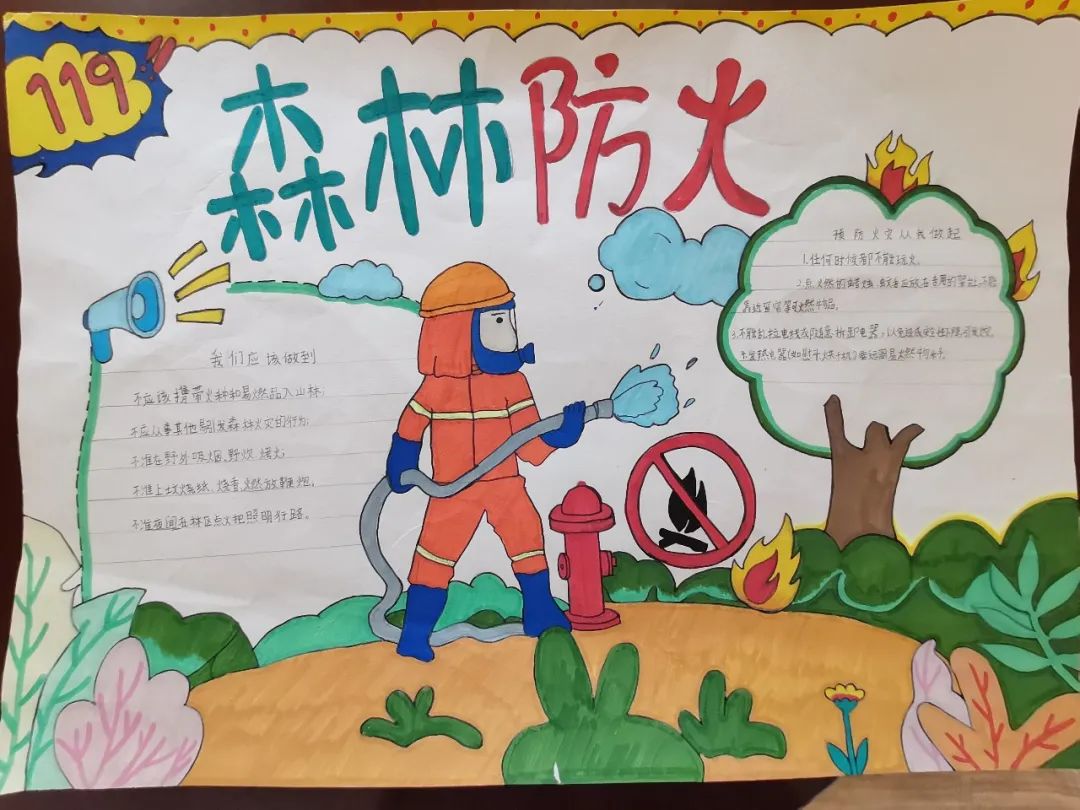 119
森林防火
我们应该做到
不应该携带火种和易燃品入山林;
不应从事其他易引发森林火灾的行为;
不准在野外吸烟、野炊、烤火;
不准上坟烧纸、烧香、燃放鞭炮。
不准夜间在林区点火把照明行路。
预防火灾从我做起
1.任何时候都不能玩火。
2.点燃的蜡烛、蚊香应放在专用的架台上,不能
靠近窗帘等可燃物品。
3.不能乱拉电线或随意拆卸电器,以免造成
发热电器(如 )要远离易燃物